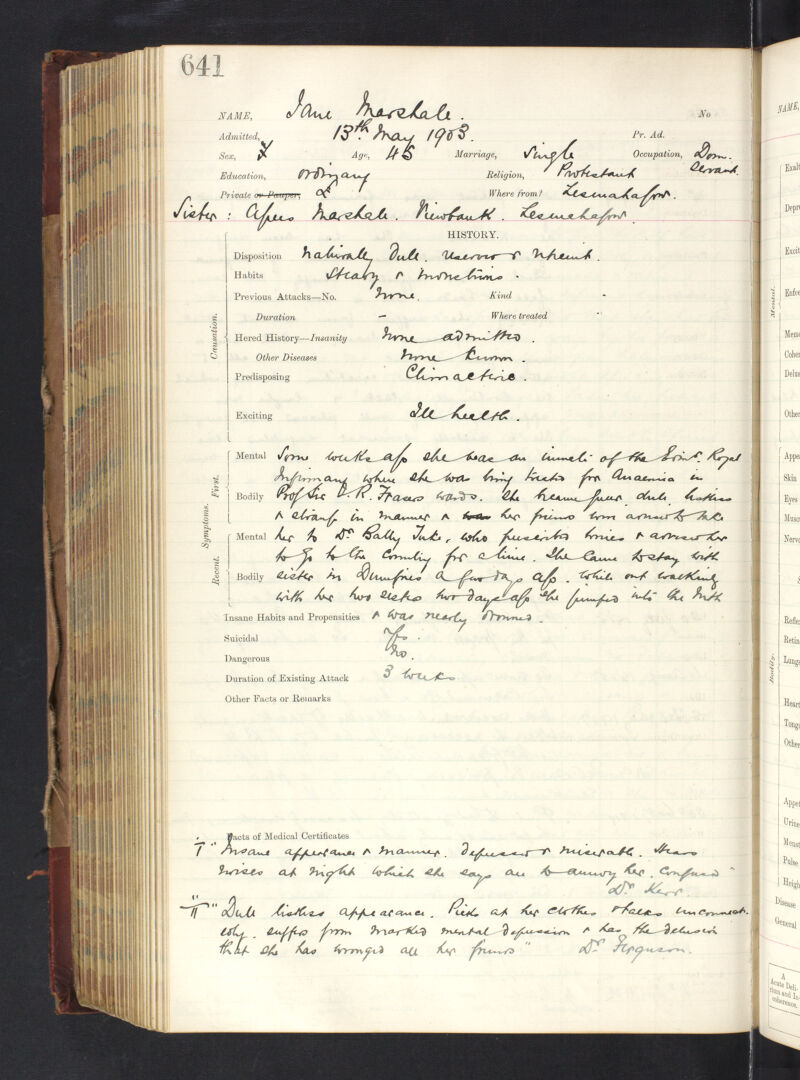 641
NAME, Jane Marshall. No
Admitted, 13th May 1903. Pr. Ad.
Sex, F Age, 45 Marriage, Single Occupation, Dom.
Servant.
Education, ordinary Religion, Protestant
Private or Pauper, Where from? Lesmahagow.
Sister: Agnes Marshall. Viewbank. Lesmahagow.
HISTORY.
Causation.
Disposition Naturally dull. reserved & reticent.
Habits Steady & industrious.
Previous Attacks—No. None. Kind -
Duration - Where treated -
Hered History—Insanity None admitted.
Other Diseases None known.
Predisposing Climacteric.
Exciting Ill health.
Symptoms.
First.
Mental Some weeks ago she was an inmate of the Edinr. Royal
Infirmary where she was being treated for Anaemia in
Bodily Prof Sir T. R. Frasers wards. She became queer dull listless
& strange in manner & was her friends were advised to take
Recent.
Mental her to Dr Batty Tuke, who prescribed tonics & advised her
to go to the country for a time. She came to stay with
Bodily sister in Dumfries a few days ago. While out walking
with her two sisters two days ago she jumped into the Nith
Insane Habits and Propensities & was nearly drowned.
Suicidal Yes.
Dangerous No.
Duration of Existing Attack 3 weeks
Other Facts or Remarks
Facts of Medical Certificates
I "Insane appearance & manner. depressed & miserable. Hears
noises at night which she says are to annoy her. Confused"
Dr. Kerr.
II "Dull listless appearance. Picks at her clothes & talks unconnect-
edly. suffers from marked mental depression & has the delusion
that she has wronged all her friends" Dr. Ferguson.
NAME,
Mental.
Exalt
Depre
Excit
Enfee
Memo
Coher
Delus
Other
Bodily.
Appe
Skin
Eyes
Musc
Nervo
Reflex
Retin
Lungs
Heart
Tongu
Other
Appet
Urine
Menst
Pulse
Heigh
Disease
General
A
Acute Deli-
rium and In-
coherence.